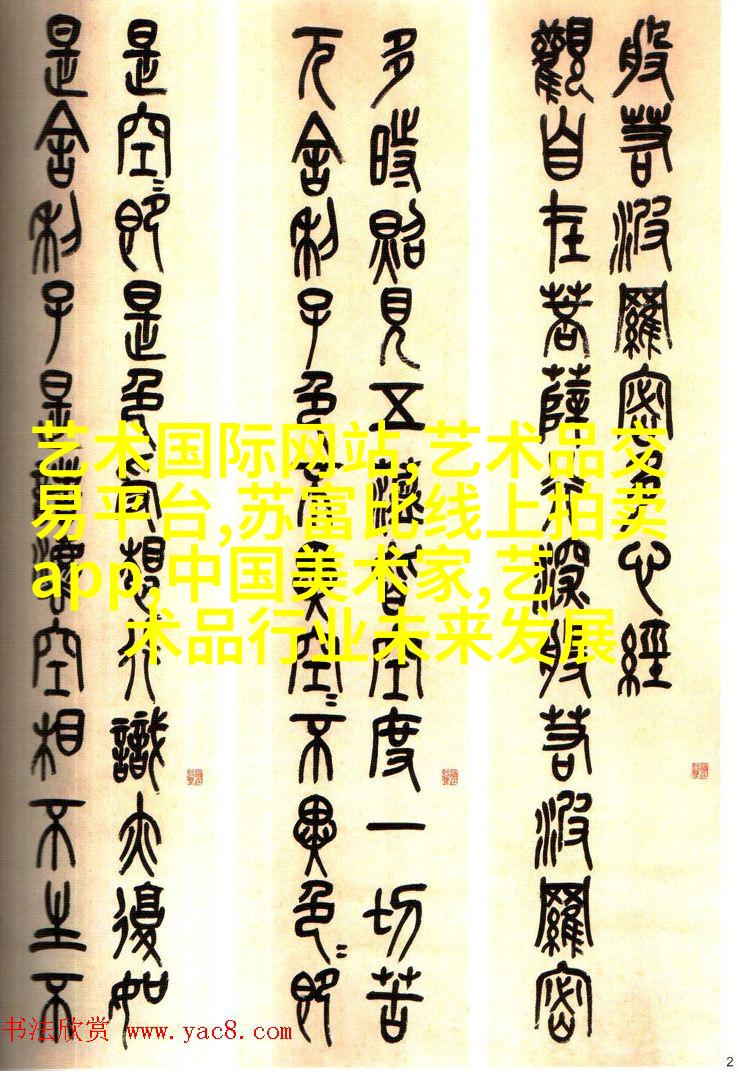 般若波羅密多心經
觀自在菩薩行深般若波羅密
多時照見五蘊皆空度一切苦
厄舍利子色不異空〻不異色〻即
是空〻即是色受想行識亦復如
是舍利子是諸法空相不生不
艺术国际网站,艺术品交
易平台,苏富比线上拍卖
app,中国美术家,艺
术品行业未来发展
书法欣赏 www.yac8.com
2